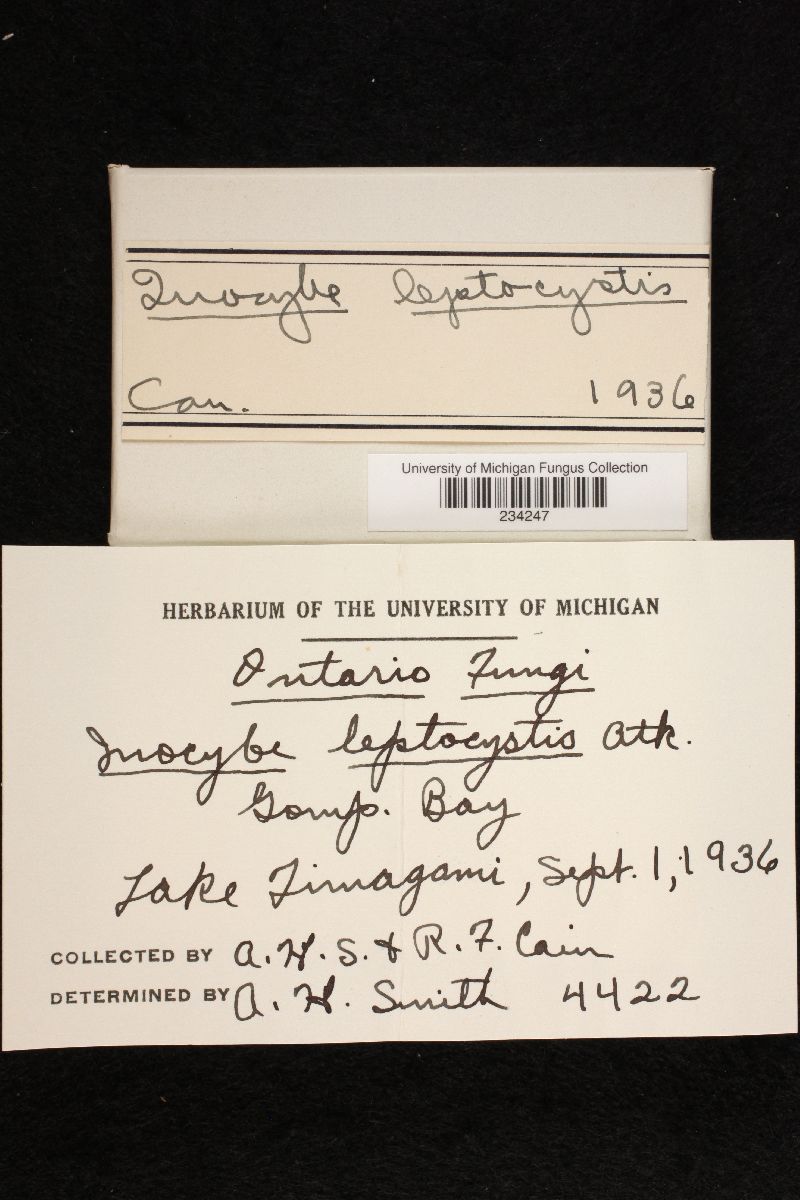 Inocybe leptocystis
Can. 1936
University of Michigan Fungus Collection
234247
HERBARIUM OF THE UNIVERSITY OF MICHIGAN
Ontario Fungi
Inocybe leptocystis Atk.
Gomp. Bay
Lake Timagami, Sept. 1, 1936
COLLECTED BY A. H. S. & R. F. Cain
DETERMINED BY A. H. Smith 4422